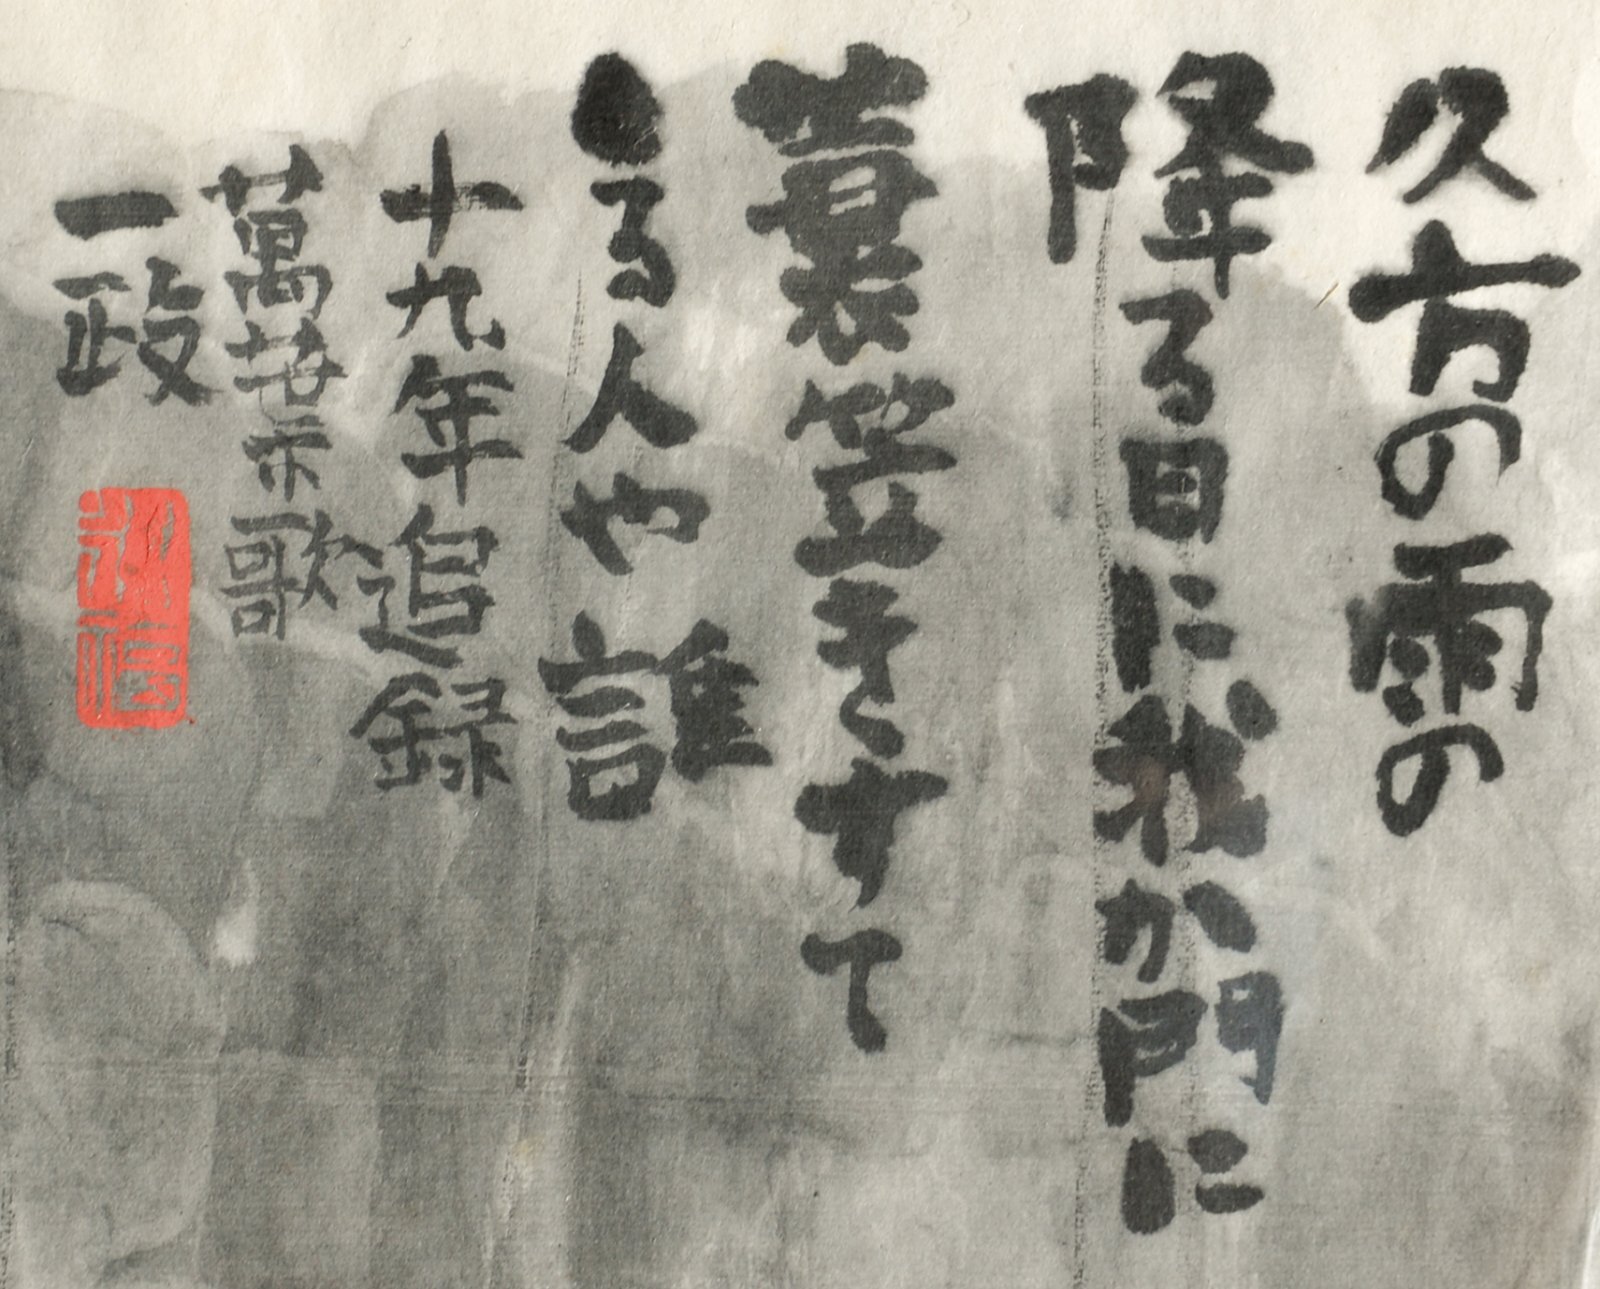 久方の雨の
降る日に我か門に
蓑笠きすて
る人や誰
十九年追録
萬葉歌
一政